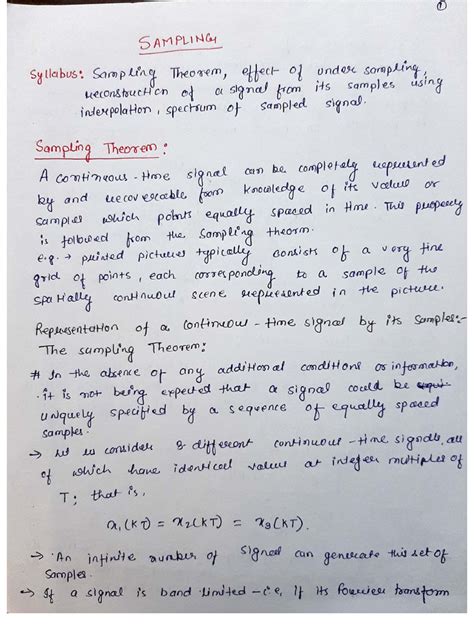 ①
SAMPLING
Syllabus: Sampling Theorem, effect of under sampling,
reconstruction of a signal from its samples using
interpolation, spectrum of sampled signal.
Sampling Theorem:
A continuous-time signal can be completely represented
by and recoverable from knowledge of its value or
samples which points equally spaced in time. This property
is followed from the sampling theorm.
e.g. → printed pictures typically consists of a very fine
grid of points, each corresponding to a sample of the
spatially continuous scene represented in the picture.
Representation of a continuous-time signal by its samples:-
The sampling Theorem:
# In the absence of any additional conditions or information,
it is not being expected that a signal could be
uniquely specified by a sequence of equally spaced
samples.
→ let us consider 3 different continuous-time signals, all
of which have identical value at integer multiples of
T; that is,
x₁(KT) = x₂(KT) = x₃(KT).
→ An infinite number of signal can generate this set of
samples.
→ If a signal is band limited - i.e, if its fourier transform